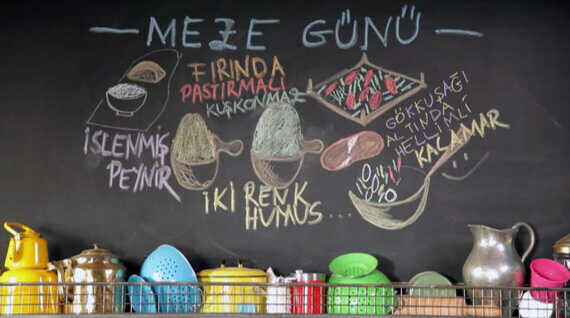 — MEZE GÜNÜ —
FIRINDA
PASTIRMALI
KUŞKONMAZ
GÖKKUŞAĞI
ALTINDA
HELLİMLİ
KALAMAR
İSLENMİŞ
PEYNİR
İKİ RENK
HUMUS...